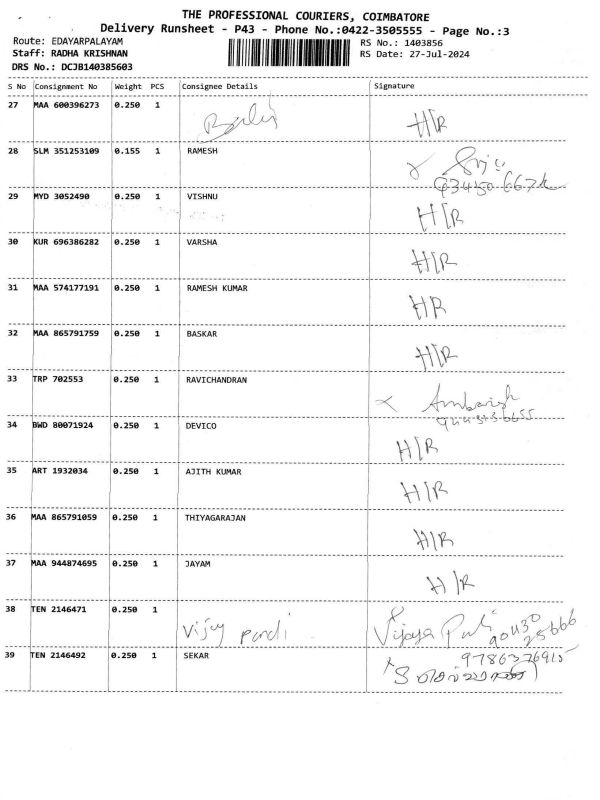 THE PROFESSIONAL COURIERS, COIMBATORE
Delivery Runsheet - P43 - Phone No.:0422-3505555 - Page No.:3
Route: EDAYARPALAYAM
RS No.: 1403856
Staff: RADHA KRISHNAN
RS Date: 27-Jul-2024
DRS No.: DCJB140385603
S No Consignment No Weight PCS Consignee Details Signature
27 MAA 600396273 0.250 1 H/R
28 SLM 351253109 0.155 1 RAMESH
29 MYD 3052490 0.250 1 VISHNU H/R
30 KUR 696386282 0.250 1 VARSHA H/R
31 MAA 574177191 0.250 1 RAMESH KUMAR HR
32 MAA 865791759 0.250 1 BASKAR H/R
33 TRP 702553 0.250 1 RAVICHANDRAN
34 BWD 80071924 0.250 1 DEVICO H/R
35 ART 1932034 0.250 1 AJITH KUMAR H/R
36 MAA 865791059 0.250 1 THIYAGARAJAN H/R
37 MAA 944874695 0.250 1 JAYAM H/R
38 TEN 2146471 0.250 1 Vijay pandi Vijaya
90430
25666
39 TEN 2146492 0.250 1 SEKAR 9786376915